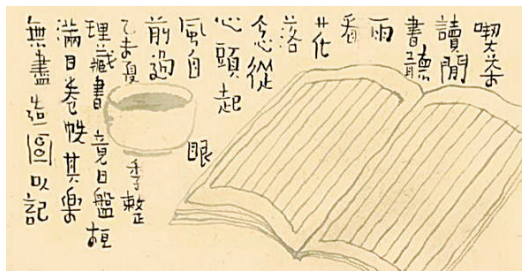 喫茶
讀閒
書聽
雨
看
花
落
念從
心頭起
風自眼
前過
乙未夏季整
理藏書竟日盤桓
滿目卷帙其樂
無盡造圖以記